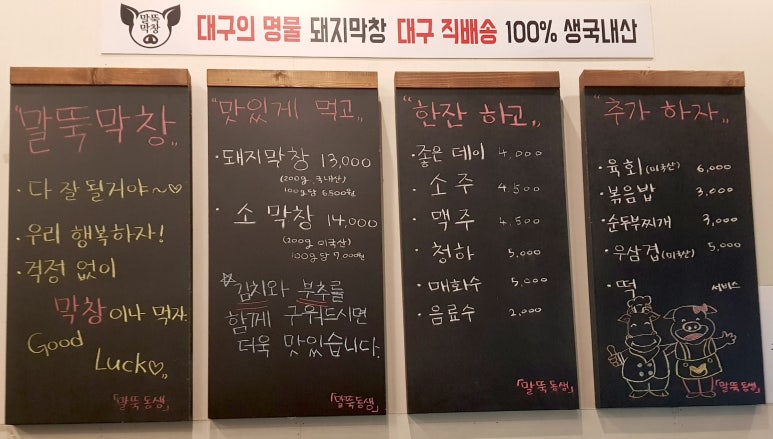 말뚝
막창
대구의 명물 돼지막창 대구 직배송 100% 생국내산
"말뚝막창"
· 다 잘 될거야~♡
· 우리 행복하자!
· 걱정 없이
막창이나 먹자
Good
Luck♡
「말뚝동생」
"맛있게 먹고"
· 돼지막창 13,000
(200g 국내산)
100g당 6,500원
· 소 막창 14,000
(200g 미국산)
100g당 7,000원
☆김치와 부추를
함께 구워드시면
더욱 맛있습니다.
「말뚝동생」
"한잔 하고"
· 좋은데이 4,000
· 소주 4,500
· 맥주 4,500
· 청하 5,000
· 매화수 5,000
· 음료수 2,000
「말뚝동생」
"추가 하자"
· 육회(미국산) 6,000
· 볶음밥 3,000
· 순두부찌개 3,000
· 우삼겹(미국산) 5,000
· 떡 서비스
「말뚝동생」